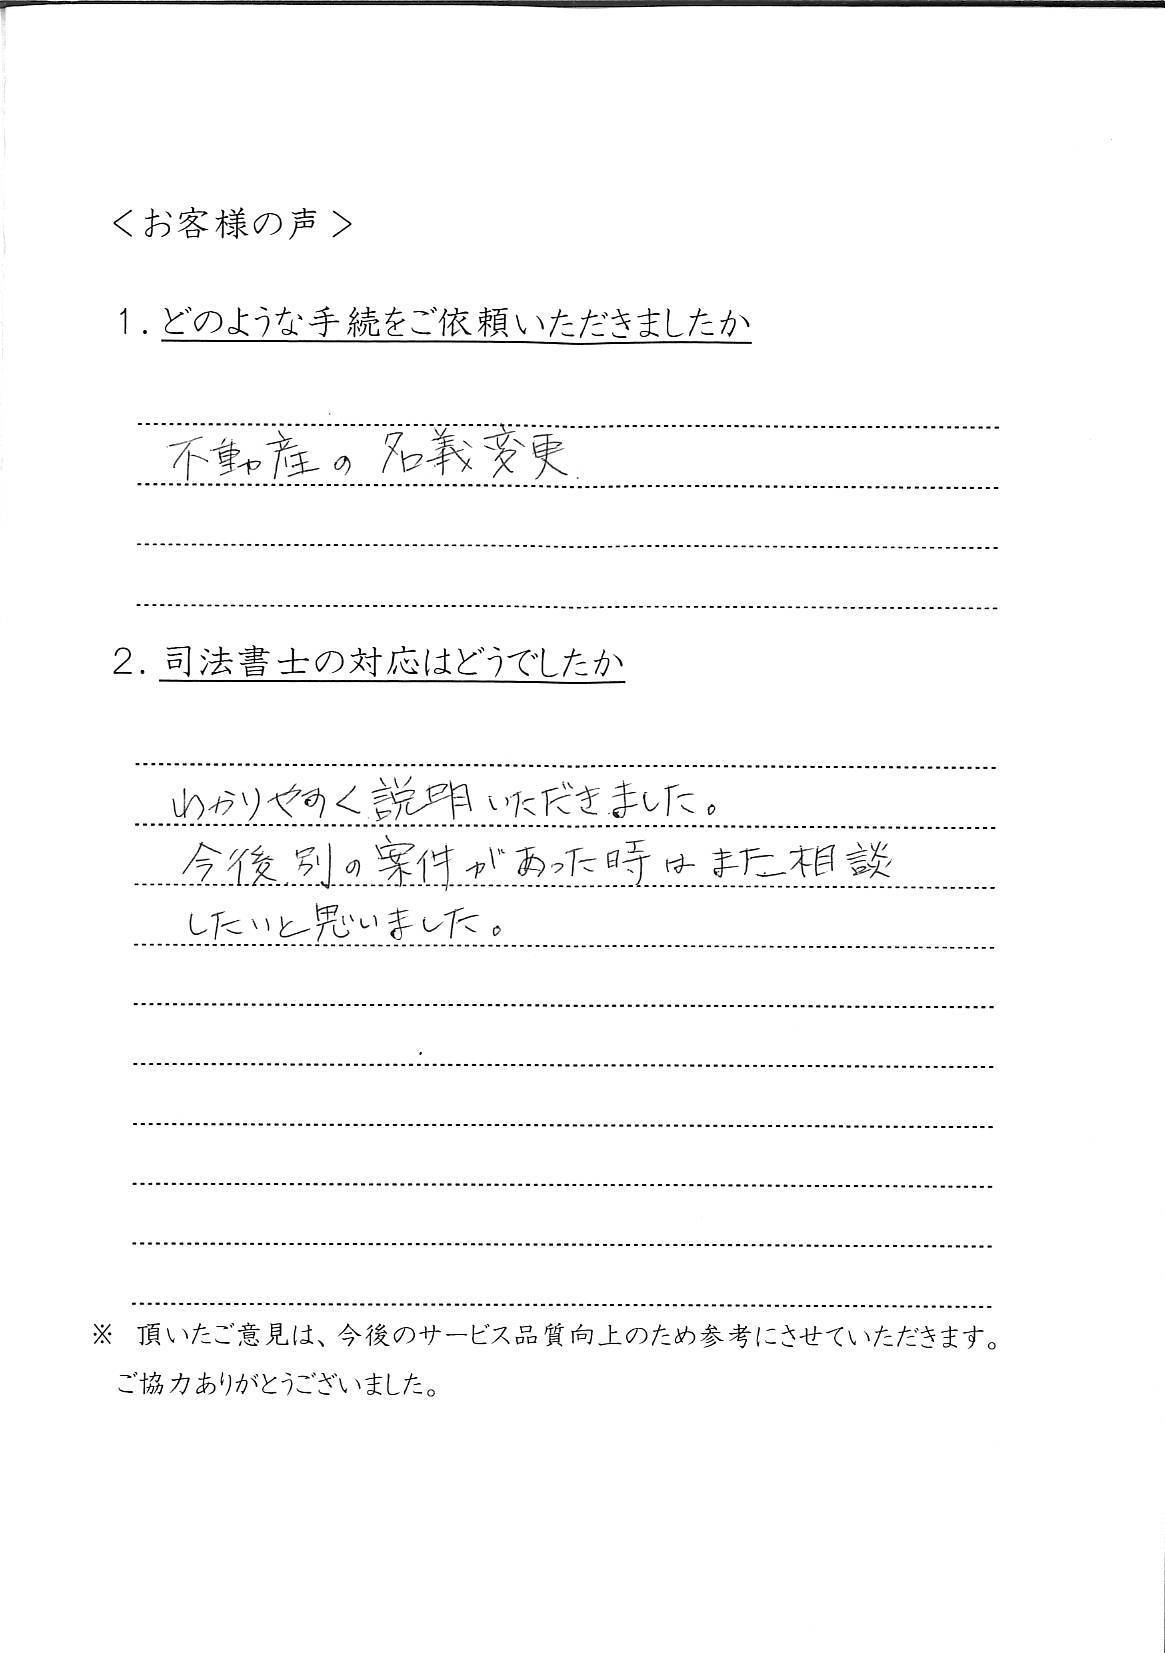 ＜お客様の声＞
１．どのような手続をご依頼いただきましたか
不動産の名義変更
２．司法書士の対応はどうでしたか
わかりやすく説明いただきました。
今後別の案件があった時はまた相談
したいと思いました。
※　頂いたご意見は、今後のサービス品質向上のため参考にさせていただきます。
ご協力ありがとうございました。